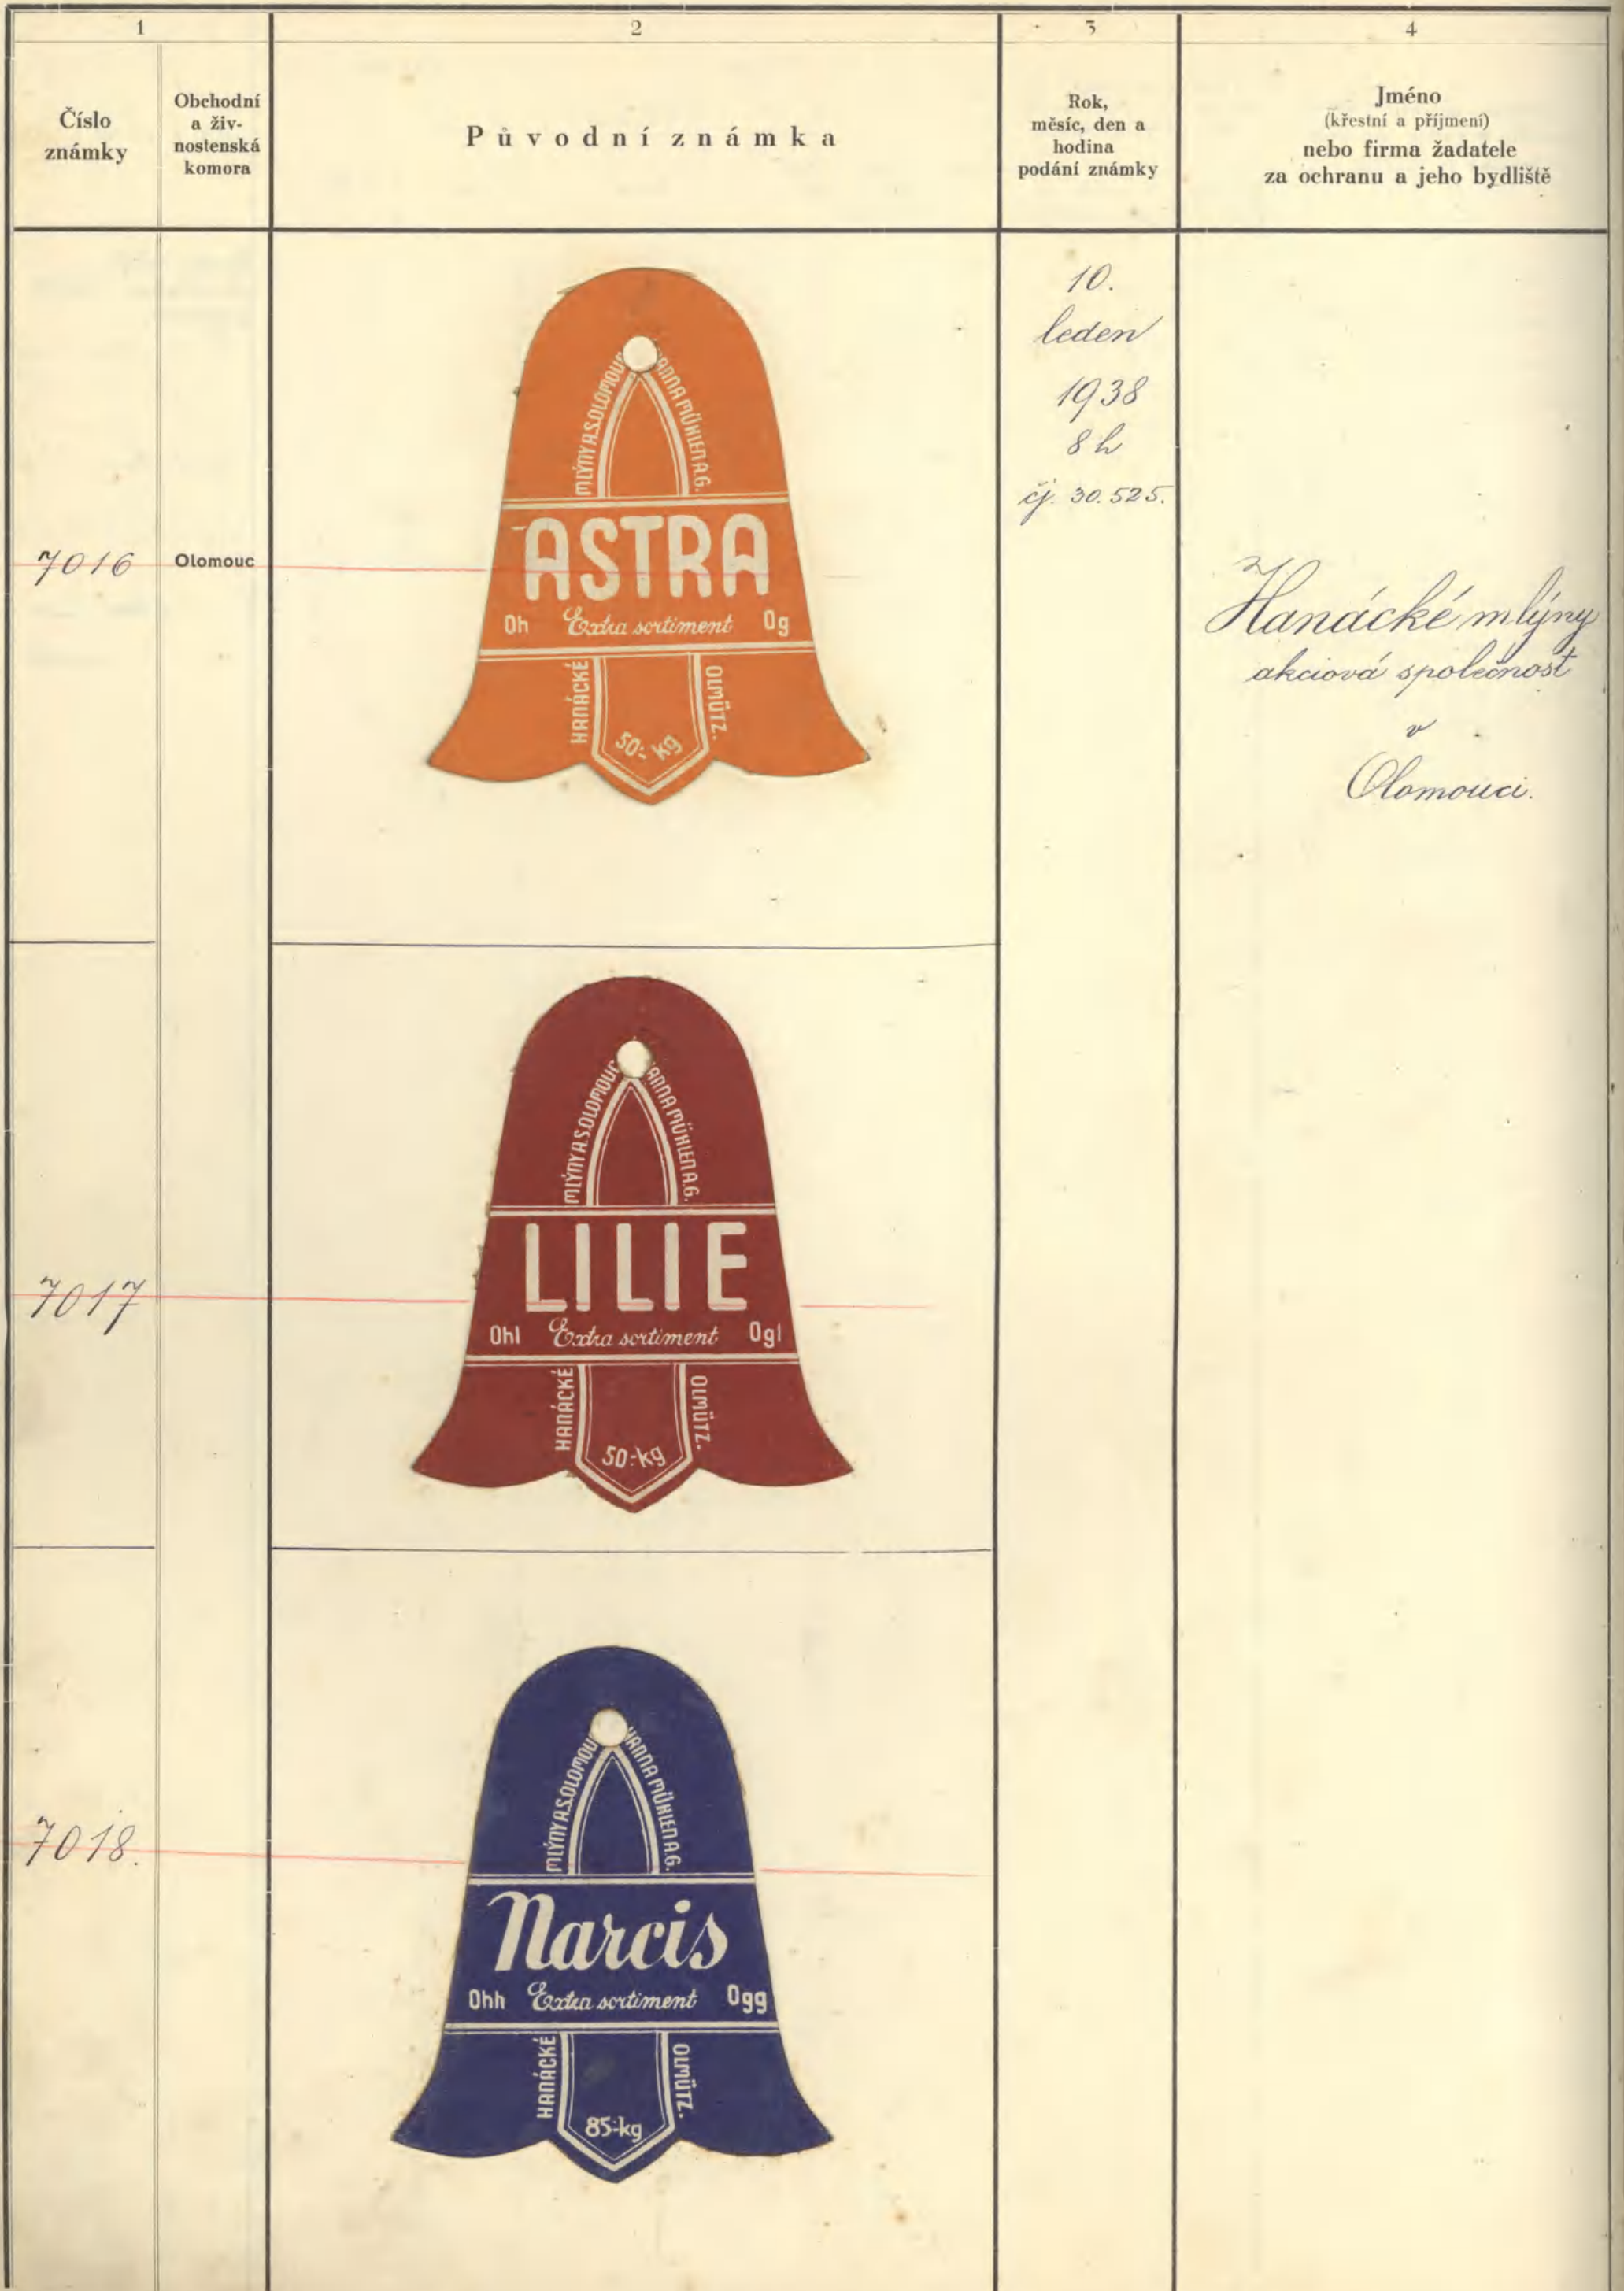 1
2
3
4
Číslo
známky
Obchodní
a živ-
nostenská
komora
Původní známka
Rok,
měsíc, den a
hodina
podání známky
Jméno
(křestní a příjmení)
nebo firma žadatele
za ochranu a jeho bydliště
7016
Olomouc
HANÁCKÉ
MLÝNY A.S. OLOMOUC
HANNA MÜHLEN A.G.
OLMÜTZ.
ASTRA
0h Extra sortiment 0g
50:- kg
10.
leden
1938
8 h
čj. 30.525.
Hanácké mlýny
akciová společnost
v
Olomouci.
7017
HANÁCKÉ
MLÝNY A.S. OLOMOUC
HANNA MÜHLEN A.G.
OLMÜTZ.
LILIE
0hl Extra sortiment 0gl
50:- kg
7018.
HANÁCKÉ
MLÝNY A.S. OLOMOUC
HANNA MÜHLEN A.G.
OLMÜTZ.
Narcis
0hh Extra sortiment 0gg
85:- kg